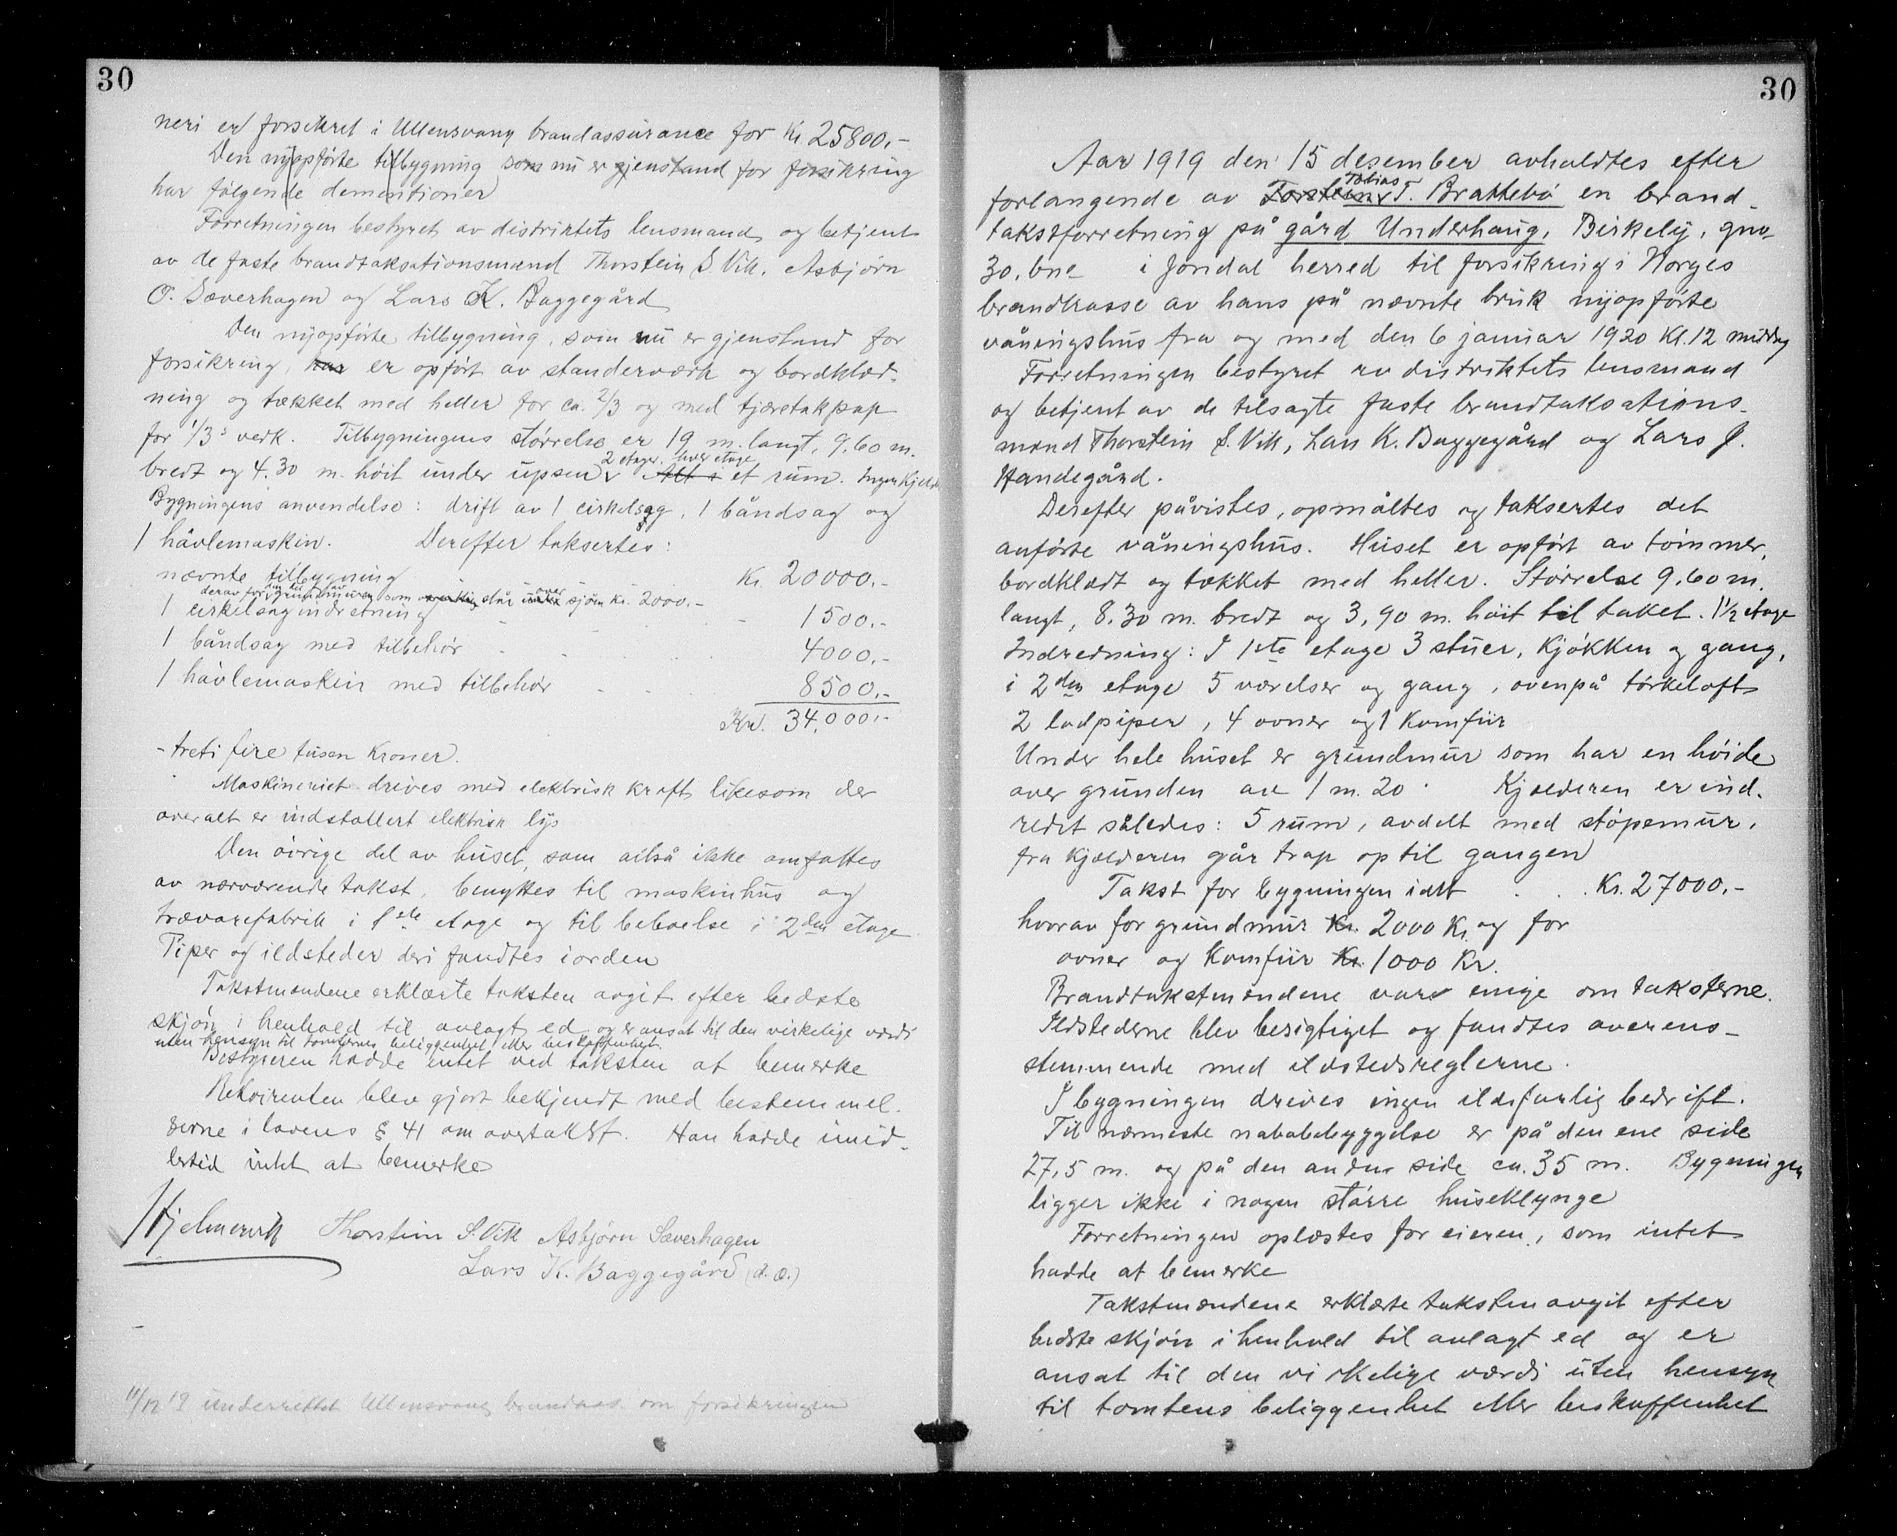 30
neri er forsikret i Ullensvang brandassurance for Kr. 25800,-
Den nyopførte tilbygning som nu er gjenstand for forsikring
har følgende dementioner
Forretningen bestyret av distriktets lensmand og betjent
av de faste brandtaksationsmænd Thorstein S. Vik, Asbjørn
O. Sæverhagen og Lars K. Baggegård
Den nyopførte tilbygning, som nu er gjenstand for
forsikring, har er opført av standerværk og bordklæd-
ning og tækket med heller for ca. 2/3 og med tjæretakpap
for 1/3 s verk. Tilbygningens størrelse er 19 m. langt, 9,60 m.
bredt og 4.30 m. høit under upsen, 2 etager, hver etage Alt i et rum. Ingen kjelder
Bygningens anvendelse: drift av 1 cirkelsag, 1 båndsag og
1 høvlemaskin. Derefter taksertes:
nævnte tilbygning Kr. 20000,-
derav for den del av grundmuren som står over sjøen kr. 2000,-
1 cirkelsagindretning - - - 1500,-
1 båndsag med tilbehør - - - 4000,-
1 høvlemaskin med tilbehør - - - 8500,-
Kr. 34,000,-
- treti fire tusen kroner.
Maskineriet drives med elektrisk kraft likesom der
overalt er indstallert elektrisk lys
Den øvrige del av huset, som altså ikke omfattes
av nærværende takst, benyttes til maskinhus og
trævarefabrik i 1ste etage og til beboelse i 2den etage
Piper og ildsteder deri fandtes iorden
Takstmændene erklærte taksten avgit efter bedste
skjøn i henhold til avlagt ed og er ansat til den virkelige værdi
uten hensyn til tomtens beliggenhet eller beskaffenhet.
Bestyreren hadde intet ved taksten at bemerke
Rekvirenten blev gjort bekjendt med bestemmel-
serne i lovens § 41 om overtakst. Han hadde imid-
lertid intet at bemerke
Hjelmevik Thorstein S. Vik Asbjørn Sæverhagen
Lars K. Baggegård (d. æ.)
11/12 19 underrettet Ullensvang brandass. om forsikringen
30
Aar 1919 den 15 desember avholdtes efter
forlangende av Torstein Tobias T. Brattebø en brand-
takstforretning på gård Underhaug, Birkely, gno
30, bne i Jondal herred til forsikring i Norges
brandkasse av hans på nævnte bruk nyopførte
våningshus fra og med den 6 januar 1920 kl. 12 middag
Forretningen bestyret av distriktets lensmand
og betjent av de tilsagte faste brandtaksations-
mænd Thorstein S. Vik, Lars K. Baggegård og Lars J.
Handegård.
Derefter påvistes, opmåltes og taksertes det
anførte våningshus. Huset er opført av tømmer,
bordklædt og tækket med heller. Størrelse 9,60 m.
langt, 8,30 m. bredt og 3,90 m. høit til taket. 1 1/2 etage
Indredning: I 1ste etage 3 stuer, kjøkken og gang,
i 2den etage 5 værelser og gang, ovenpå tørkeloft
2 lodpiper, 4 ovner og 1 komfur
Under hele huset er grundmur som har en høide
over grunden av 1 m. 20. Kjælderen er ind-
redet således: 5 rum, avdelt med støpemur.
fra kjælderen går trap op til gangen
Takst for bygningen ialt . . . Kr. 27000,-
hvorav for grundmur Kr. 2000 Kr. og for
ovner og komfur Kr. 1000 Kr.
Brandtakstmændene var enige om taksterne.
Ildstederne blev besigtiget og fandtes overens-
stemmende med ildstedsreglerne.
I bygningen drives ingen ildsfarlig bedrift.
Til nærmeste nabobebyggelse er på den ene side
27,5 m. og på den anden side ca. 35 m. Bygningen
ligger ikke i nogen større huseklynge
Forretningen oplæstes for eieren, som intet
hadde at bemerke
Takstmændene erklærte taksten avgit efter
bedste skjøn i henhold til avlagt ed og er
ansat til den virkelige værdi uten hensyn
til tomtens beliggenhet eller beskaffenhet